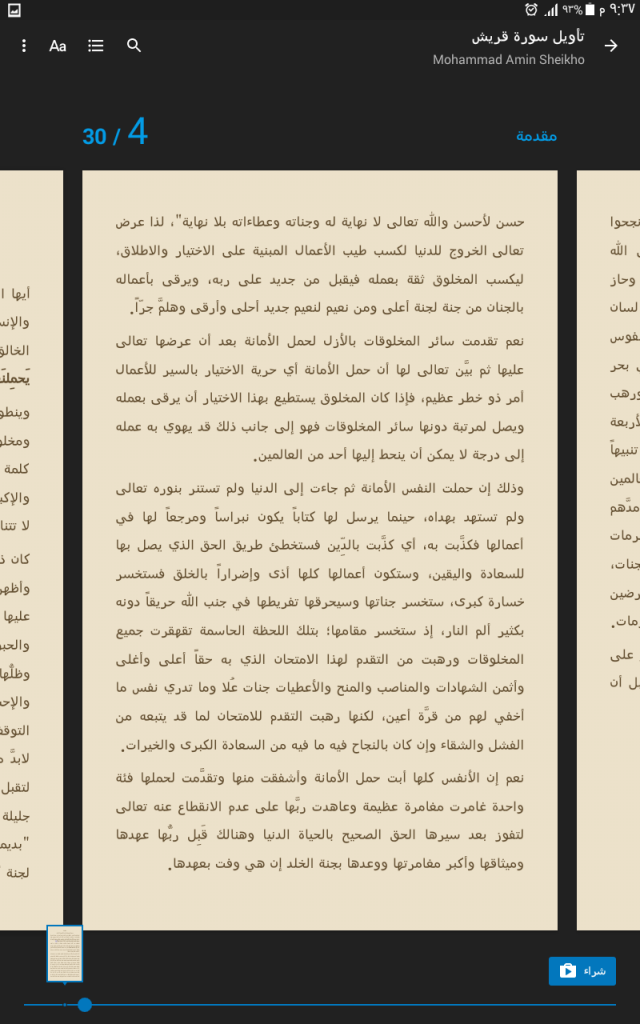 ٩:٣٧ م ٩٣%
تأويل سورة قريش
Mohammad Amin Sheikho
Aa
مقدمة
4 / 30
حسن لأحسن والله تعالى لا نهاية له وجناته وعطاءاته بلا نهاية"، لذا عرض
تعالى الخروج للدنيا لكسب طيب الأعمال المبنية على الاختيار والاطلاق،
ليكسب المخلوق ثقة بعمله فيقبل من جديد على ربه، ويرقى بأعماله
بالجنان من جنة لجنة أعلى ومن نعيم لنعيم جديد أحلى وأرقى وهلمَّ جرّاً.
نعم تقدمت سائر المخلوقات بالأزل لحمل الأمانة بعد أن عرضها تعالى
عليها ثم بيَّن تعالى لها أن حمل الأمانة أي حرية الاختيار بالسير للأعمال
أمر ذو خطر عظيم، فإذا كان المخلوق يستطيع بهذا الاختيار أن يرقى بعمله
ويصل لمرتبة دونها سائر المخلوقات فهو إلى جانب ذلك قد يهوي به عمله
إلى درجة لا يمكن أن ينحط إليها أحد من العالمين.
وذلك إن حملت النفس الأمانة ثم جاءت إلى الدنيا ولم تستنر بنوره تعالى
ولم تستهد بهداه، حينما يرسل لها كتاباً يكون نبراساً ومرجعاً لها في
أعمالها فكذَّبت به، أي كذَّبت بالدِّين فستخطئ طريق الحق الذي يصل بها
للسعادة واليقين، وستكون أعمالها كلها أذى وإضراراً بالخلق فستخسر
خسارة كبرى، ستخسر جناتها وسيحرقها تفريطها في جنب الله حريقاً دونه
بكثير ألم النار، إذ ستخسر مقامها؛ بتلك اللحظة الحاسمة تقهقرت جميع
المخلوقات ورهبت من التقدم لهذا الامتحان الذي به حقاً أعلى وأغلى
وأثمن الشهادات والمناصب والمنح والأعطيات جنات عُلا وما تدري نفس ما
أخفي لهم من قرَّة أعين، لكنها رهبت التقدم للامتحان لما قد يتبعه من
الفشل والشقاء وإن كان بالنجاح فيه ما فيه من السعادة الكبرى والخيرات.
نعم إن الأنفس كلها أبت حمل الأمانة وأشفقت منها وتقدَّمت لحملها فئة
واحدة غامرت مغامرة عظيمة وعاهدت ربَّها على عدم الانقطاع عنه تعالى
لتفوز بعد سيرها الحق الصحيح بالحياة الدنيا وهنالك قَبِل ربُّها عهدها
وميثاقها وأكبر مغامرتها ووعدها بجنة الخلد إن هي وفت بعهدها.
شراء